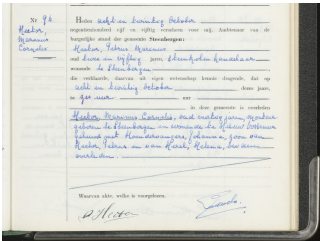 Nr 96
Hector,
Marinus
Cornelis
Heden acht en twintig October
negentienhonderd vijf en vijftig verscheen voor mij, Ambtenaar van de
burgerlijke stand der gemeente Steenbergen:
Hector, Petrus Marinus
oud twee en vijftig jaren, steenkolenhandelaar
wonende te Steenbergen
die verklaarde, daarvan uit eigen wetenschap kennis dragende, dat op
acht en twintig October dezer jaars,
te zes uur
in deze gemeente is overleden
Hector Marinus Cornelis, oud jaren,
geboren te Steenbergen en wonende te
gehuwd met Johanna, zoon van
Hector Petrus en van Helena, beiden
overleden.
Waarvan akte, welke is voorgelezen.
P. Hector